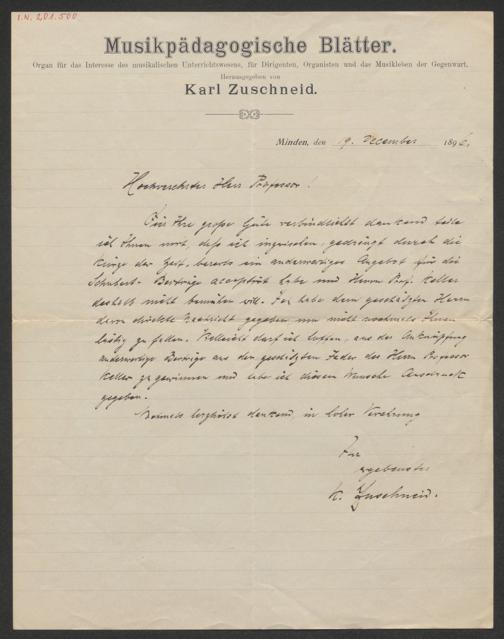 I.N. 201.500
Musikpädagogische Blätter.
Organ für das Interesse des musikalischen Unterrichtswesens, für Dirigenten, Organisten und das Musikleben der Gegenwart.
Herausgegeben von
Karl Zuschneid.
Minden, den 19. December 1896.
Hochverehrter Herr Professor!
Für Ihre große Güte verbindlichst dankend teile
ich Ihnen mit, daß ich inzwischen, gedrängt durch die
Kürze der Zeit, bereits ein anderweitiges Angebot für die
Schubert-Beiträge acceptirt habe und Herrn Prof. Keller
deshalb nicht bemühen will. Ich habe dem geschätzten Herrn
davon direkte Nachricht gegeben um nicht nochmals Ihnen
lästig zu fallen. Vielleicht darf ich hoffen, aus der Anknüpfung
anderweitige Beiträge aus der geschätzten Feder des Herrn Professor
Keller zu gewinnen und habe ich diesem Wunsche Ausdruck
gegeben.
Nochmals herzlichst dankend, in hoher Verehrung
Ihr
ergebenster
K. Zuschneid.